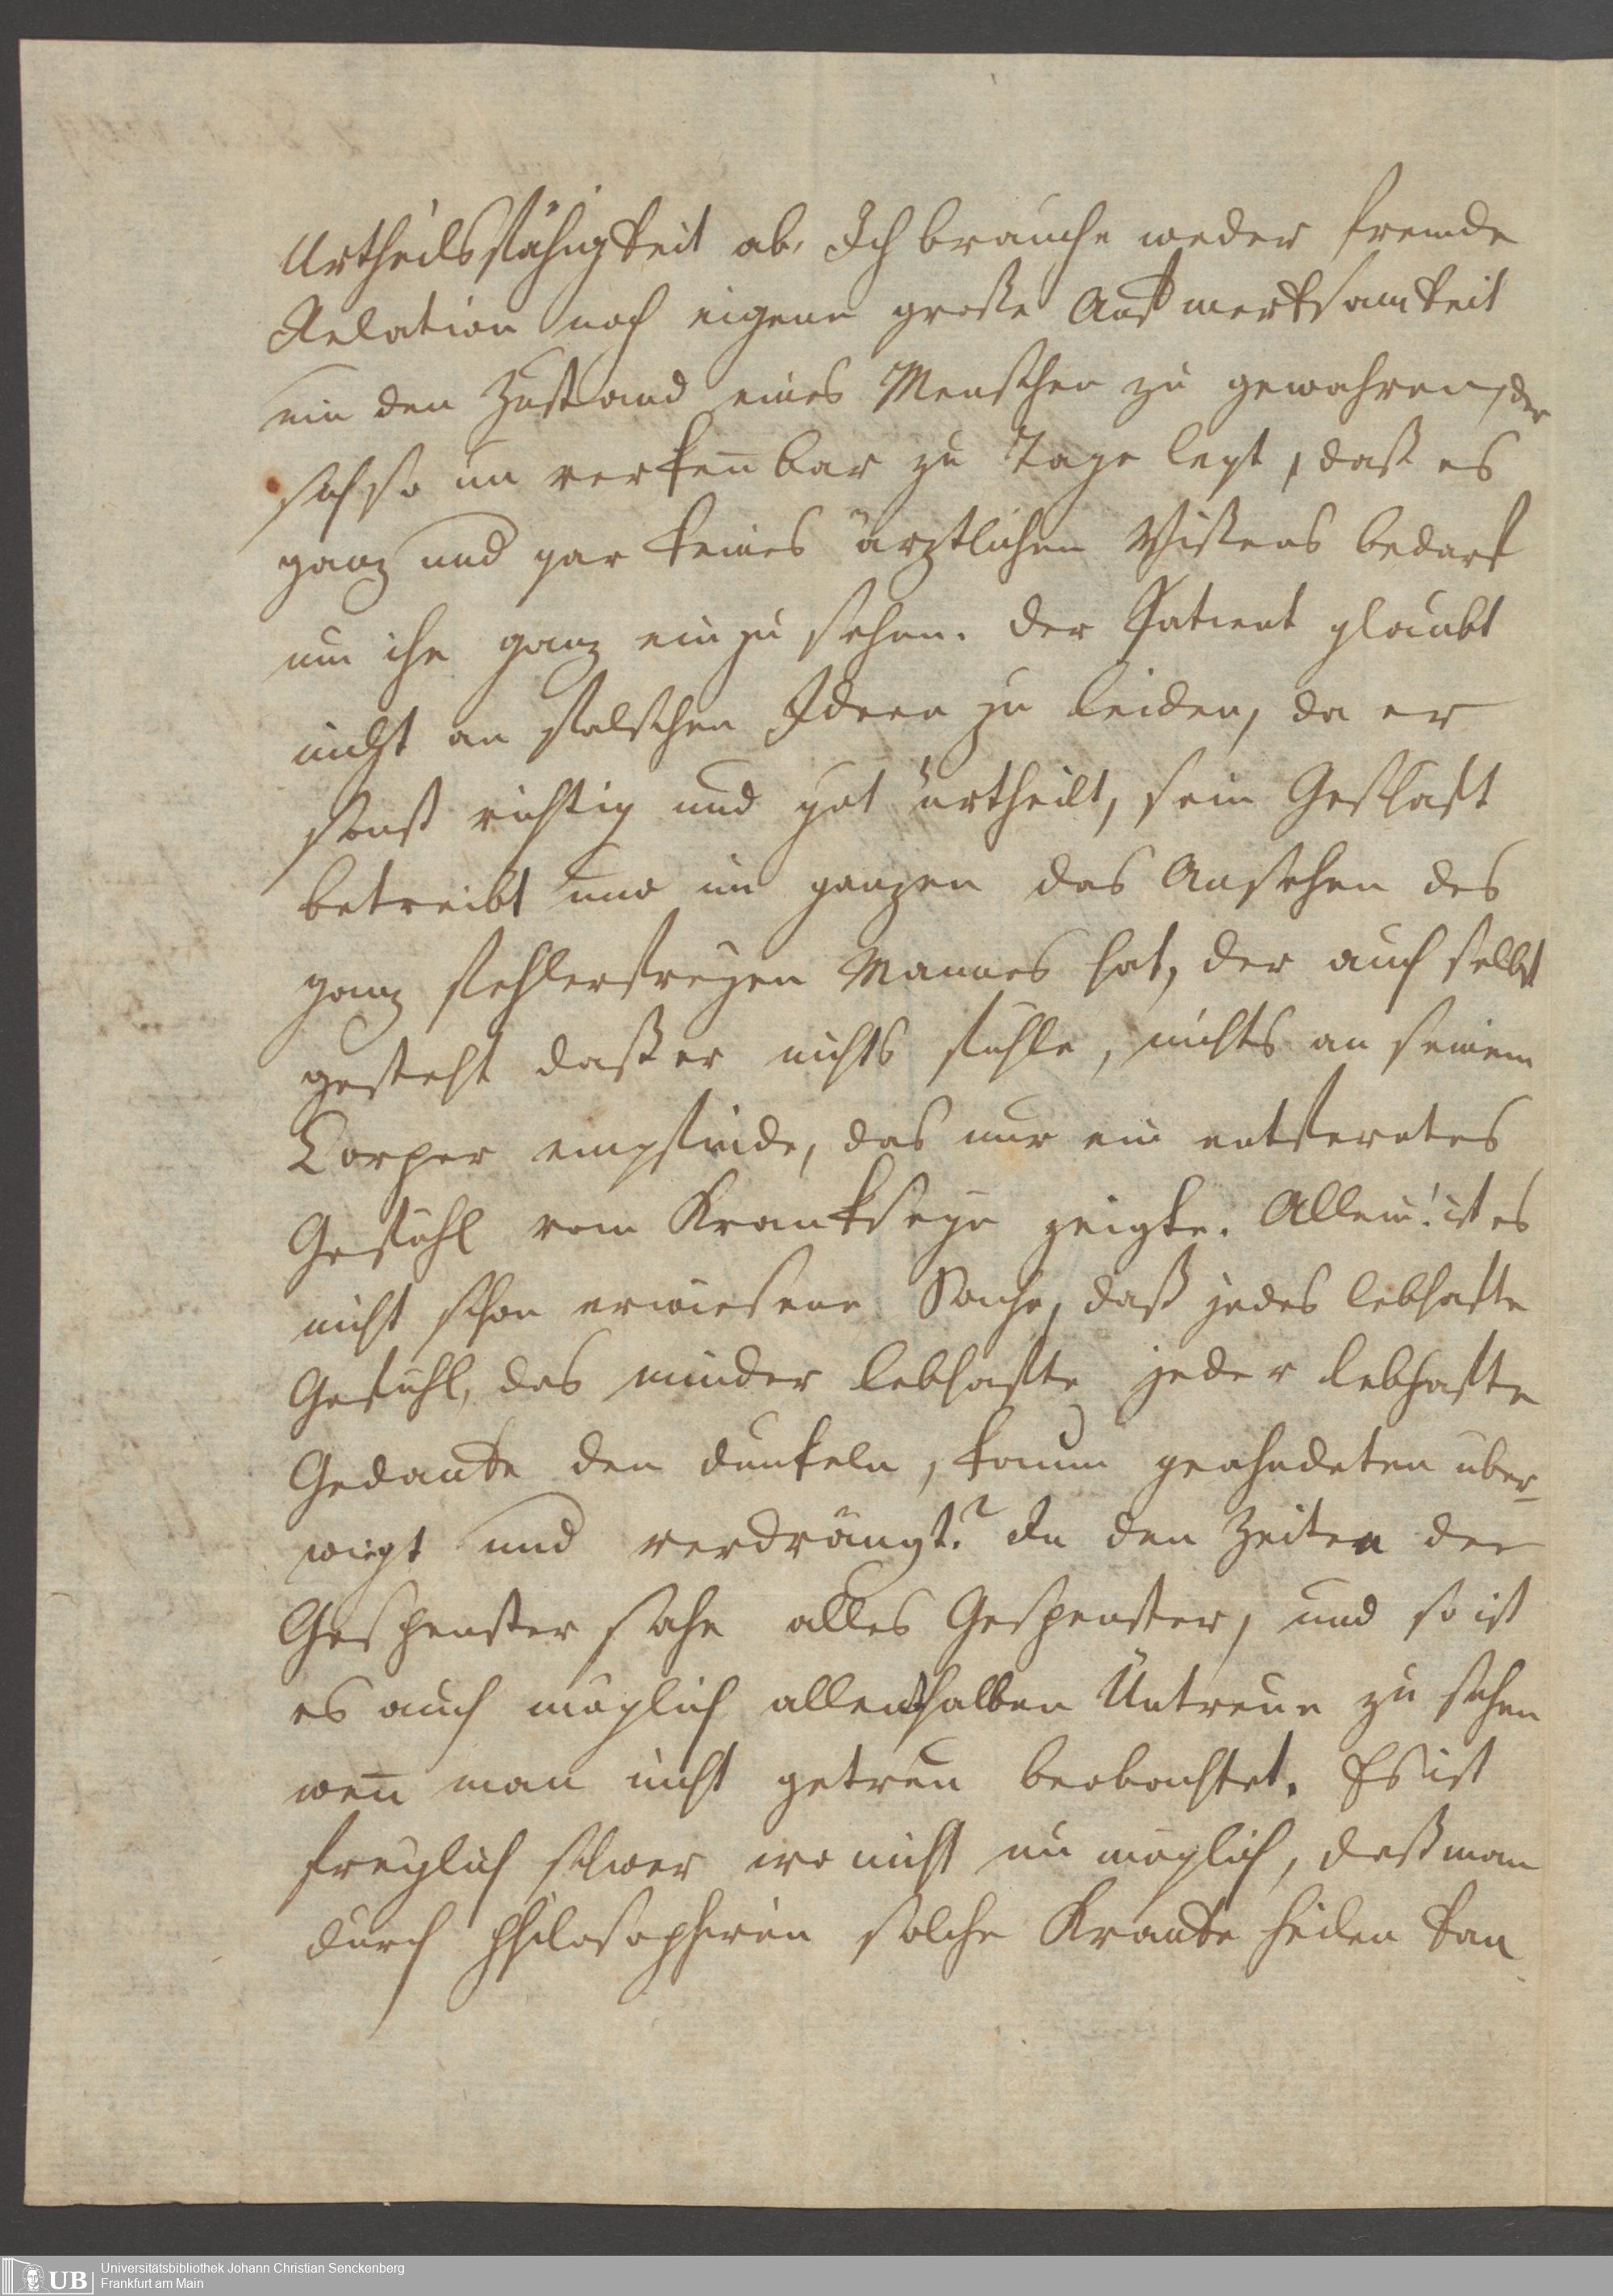 Urtheilsfähigkeit ab. Ich brauche weder fremde
Relation noch eigene große Aufmerksamkeit
um den Zustand eines Menschen zu gewahren, der
sich so un verken̄bar zu Tage legt, daß es
ganz und gar keines ärztlichen Wißens bedarf
um ihn ganz ein zu sehen. Der Patient glaubt
nicht an falschen Ideen zu leiden, da er
sonst richtig und gut urtheilt, sein Geschäft
betreibt und im ganzen das Ansehen des
ganz fehlerfreyen Mannes hat, der auch selbst
gesteht daß er nichts fühle, nichts an seinem
Corper empfinde, das nur ein entferntes
Gefühl vom Krankseyn zeigte. Allein! ist es
nicht schon erwiesene Sache, daß jedes lebhafte
Gefühl, das minder lebhafte jeder lebhafte
Gedanke den dunkeln, kaum geahndeten über-
wiegt und verdrängt? In den Zeiten der
Gespenster sahe alles Gespenster, und so ist
es auch möglich allenthalben Untreue zu sehen
wen̄ man nicht getreu beobachtet. Es ist
freylich schwer wo nicht un möglich, daß man
durch Philosophiren solche Kranke heilen kan
Universitätsbibliothek Johann Christian Senckenberg
Frankfurt am Main
UB